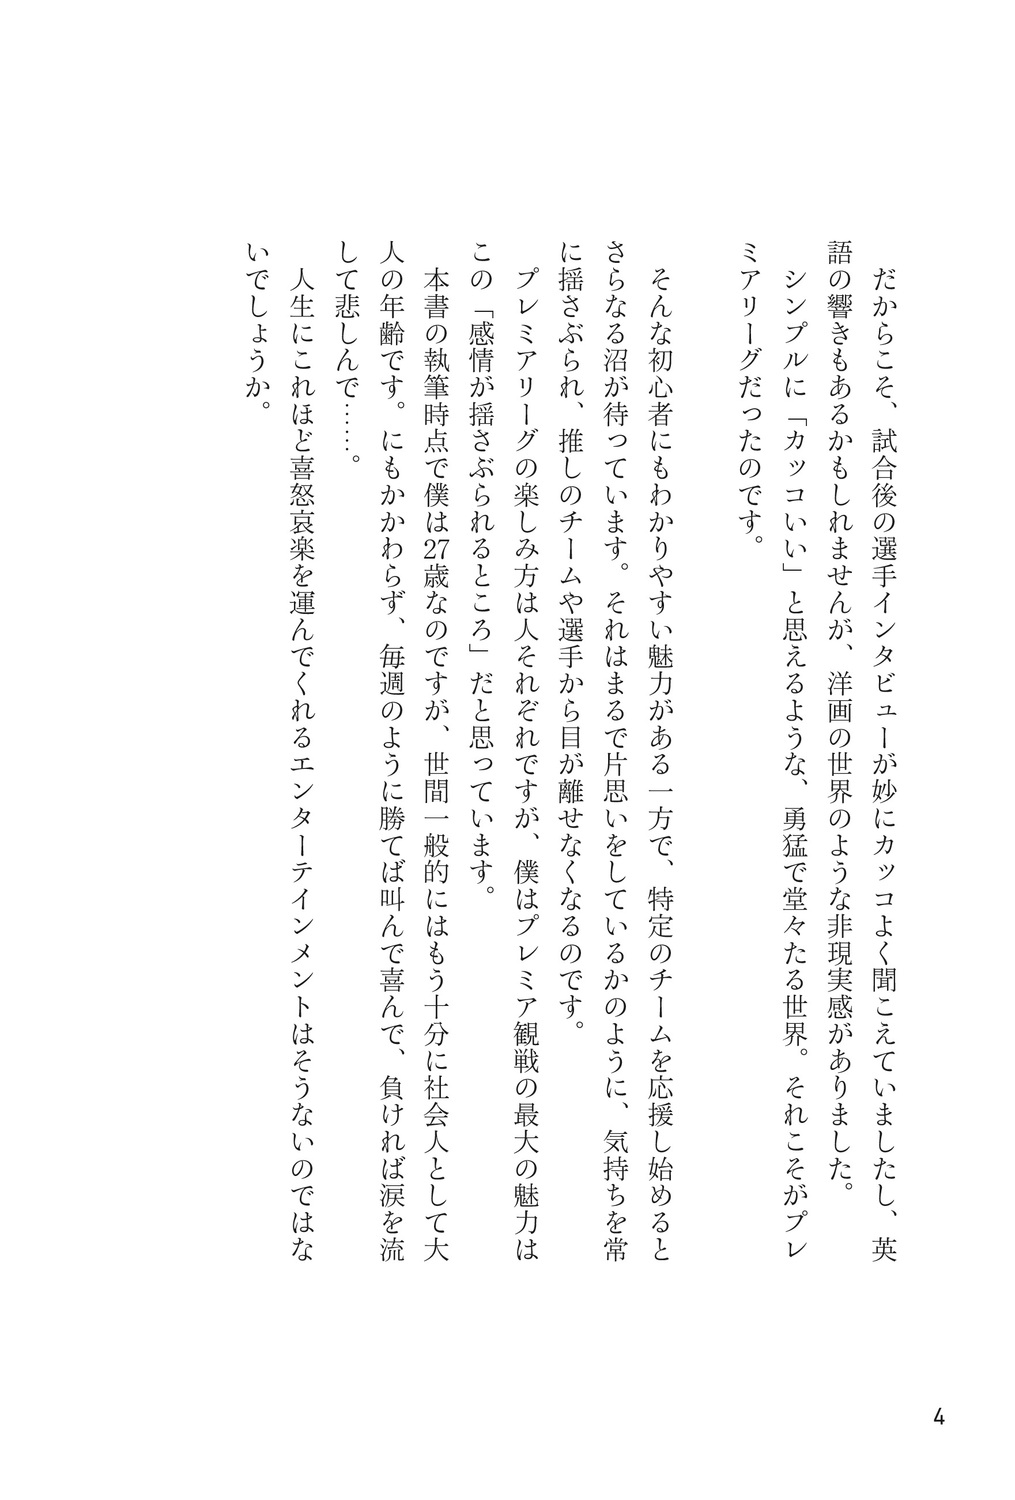 だからこそ、試合後の選手インタビューが妙にカッコよく聞こえていましたし、英
語の響きもあるかもしれませんが、洋画の世界のような非現実感がありました。
シンプルに「カッコいい」と思えるような、勇猛で堂々たる世界。それこそがプレ
ミアリーグだったのです。
そんな初心者にもわかりやすい魅力がある一方で、特定のチームを応援し始めると
さらなる沼が待っています。それはまるで片思いをしているかのように、気持ちを常
に揺さぶられ、推しのチームや選手から目が離せなくなるのです。
プレミアリーグの楽しみ方は人それぞれですが、僕はプレミア観戦の最大の魅力は
この「感情が揺さぶられるところ」だと思っています。
本書の執筆時点で僕は27歳なのですが、世間一般的にはもう十分に社会人として大
人の年齢です。にもかかわらず、毎週のように勝てば叫んで喜んで、負ければ涙を流
して悲しんで……。
人生にこれほど喜怒哀楽を運んでくれるエンターテインメントはそうないのではな
いでしょうか。
4